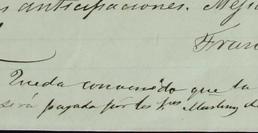 anticipaciones.
Fran
Queda convenido que la
será pagada por los Sres